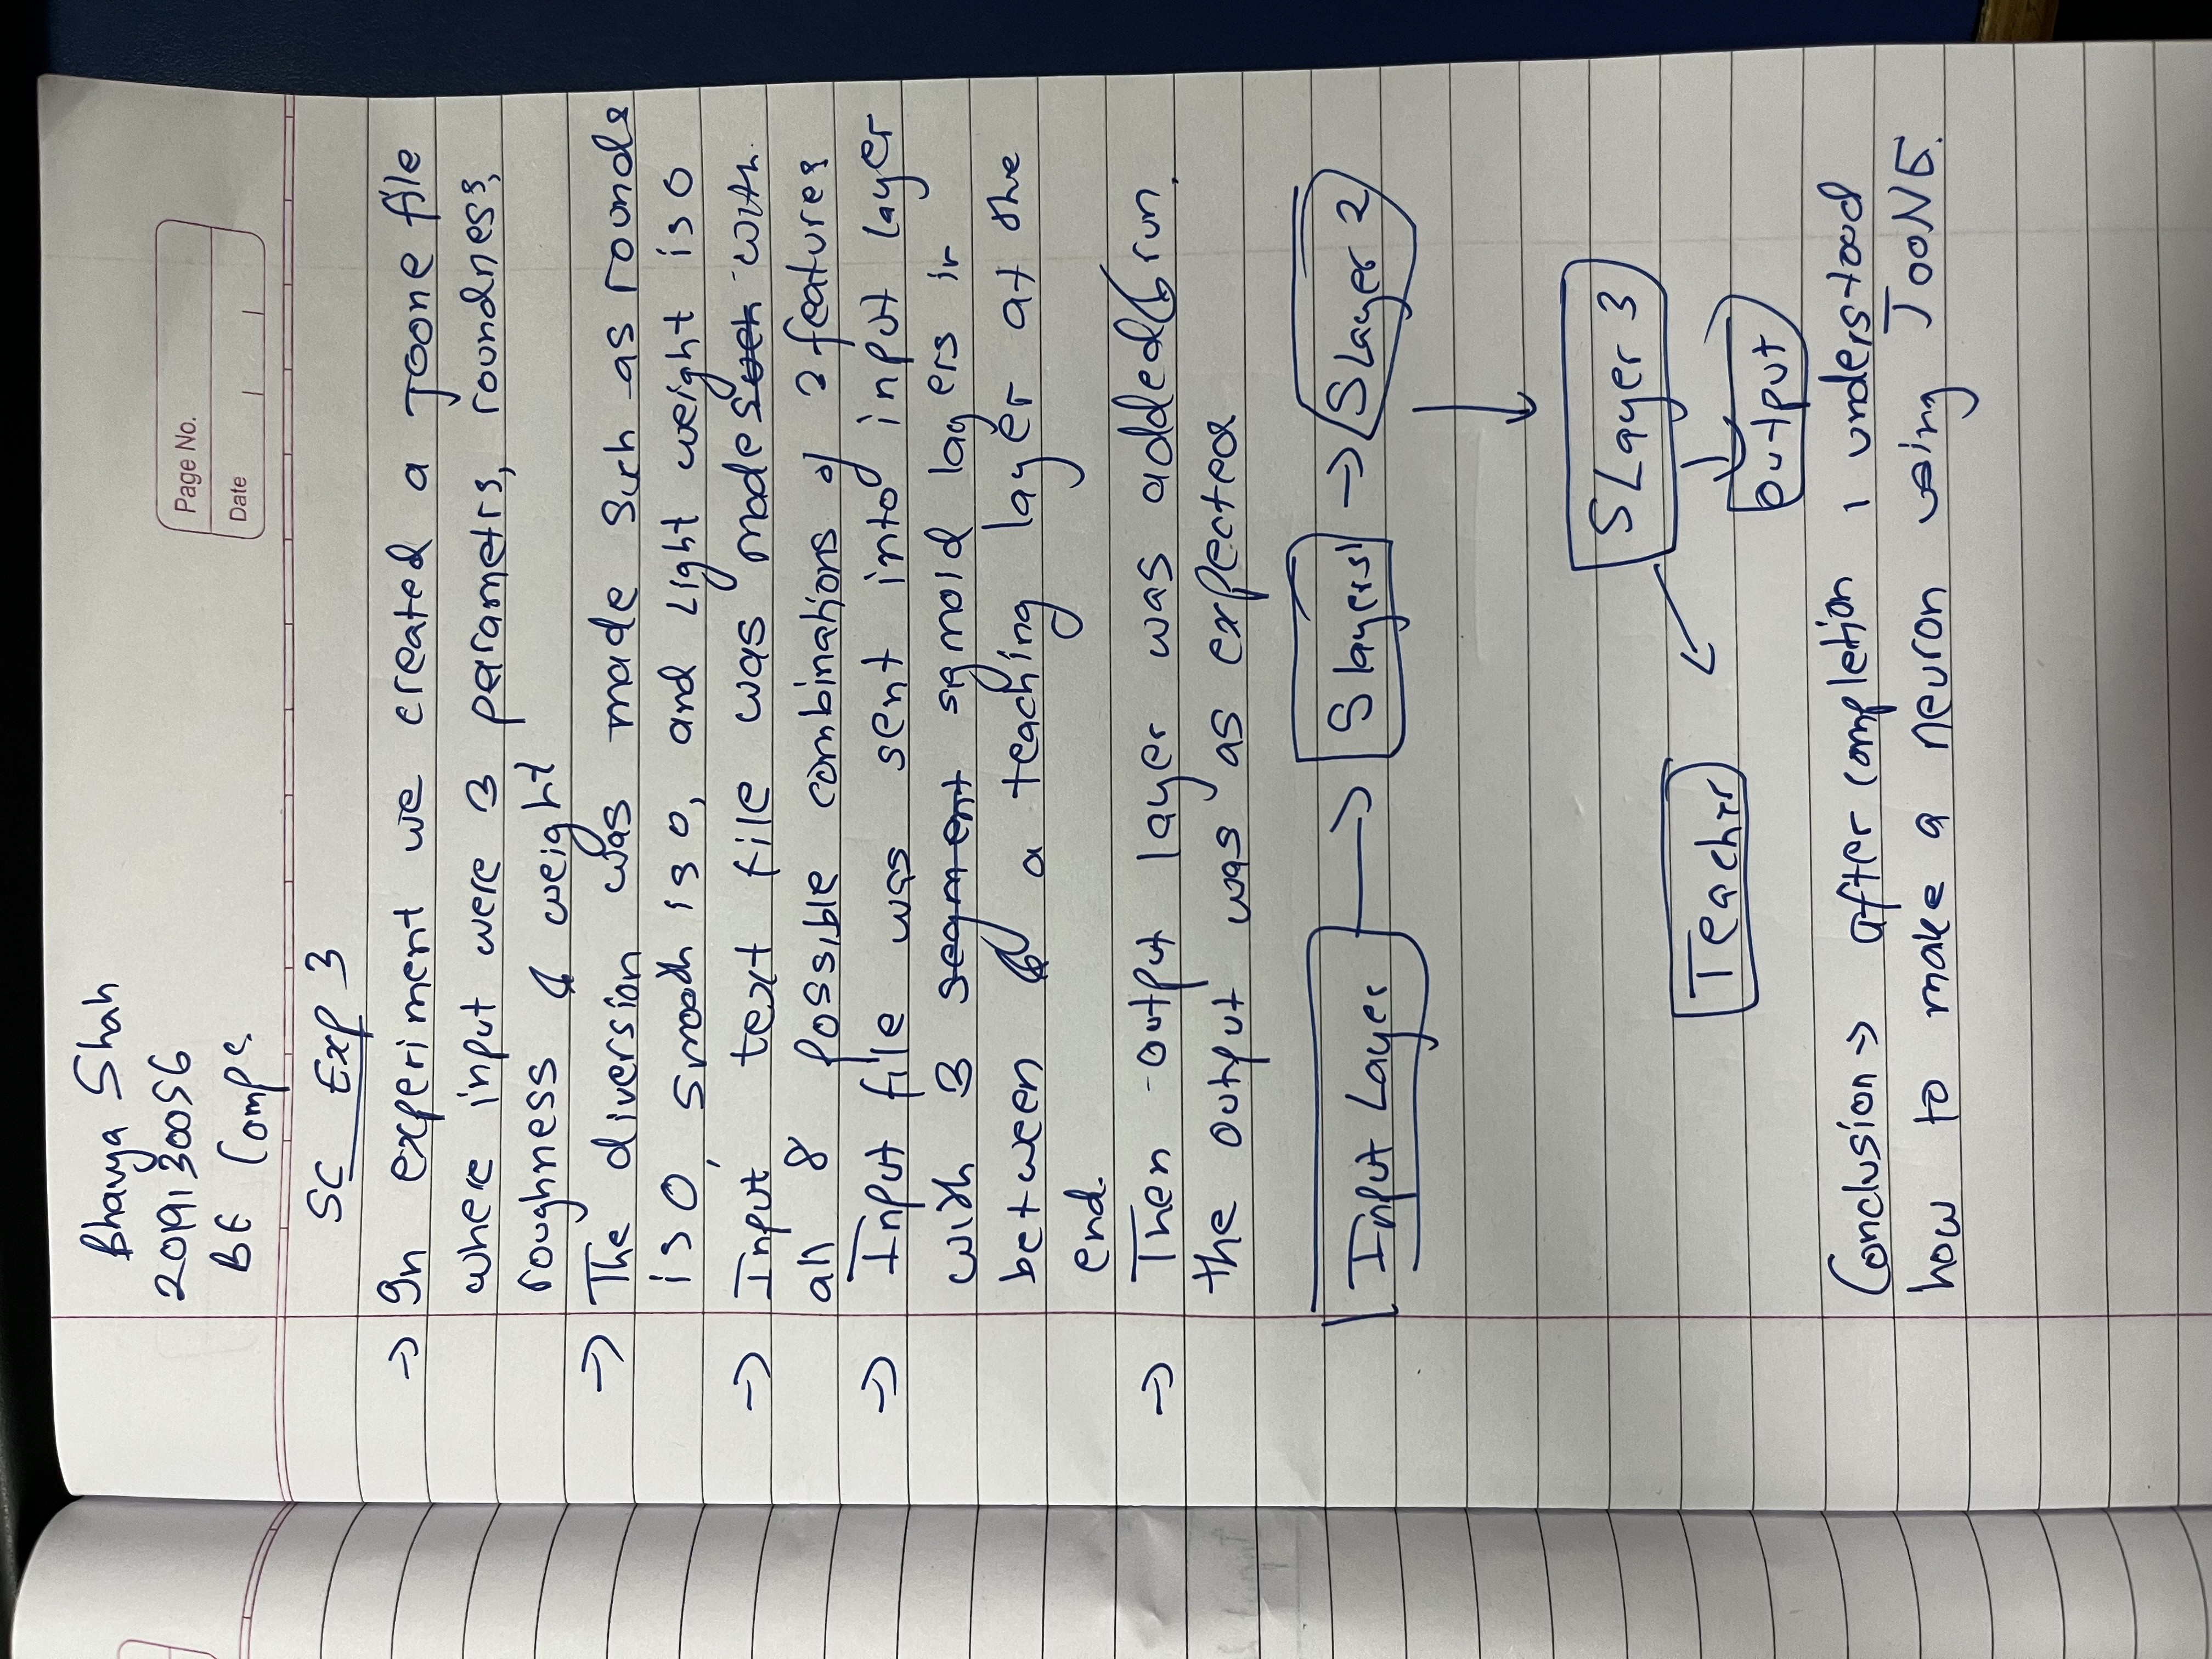 Bhavya Shah
2019130056
BE Comps
Page No.
Date
SC Exp 3
→ In experiment we created a Joone file
where input were 3 parametrs, roundness,
roughness & weight
→ The diversion was made such as rounds
is 0, smooth is 0, and Light weight is 0
→ Input text file was made such with
all 8 possible combinations of 3 features
→ Input file was sent into input layer
with 3 segment sigmoid layers in
between & a teaching layer at the
end.
→ Then output layer was added & run.
the output was as expected
Input Layer → S layers1 → SLayer 2
↓
SLayer 3
Output
Teachr
Conclusion → after completion i understood
how to make a neuron using JOONE.